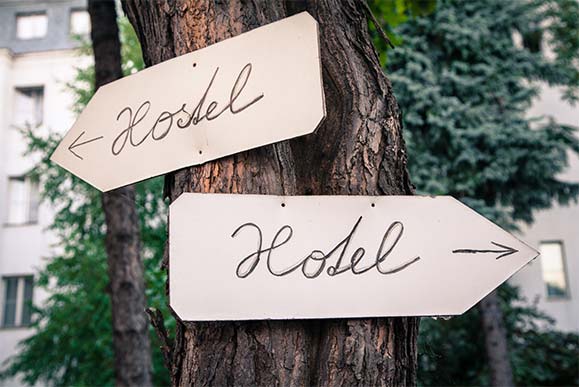 ← Hostel
Hotel →